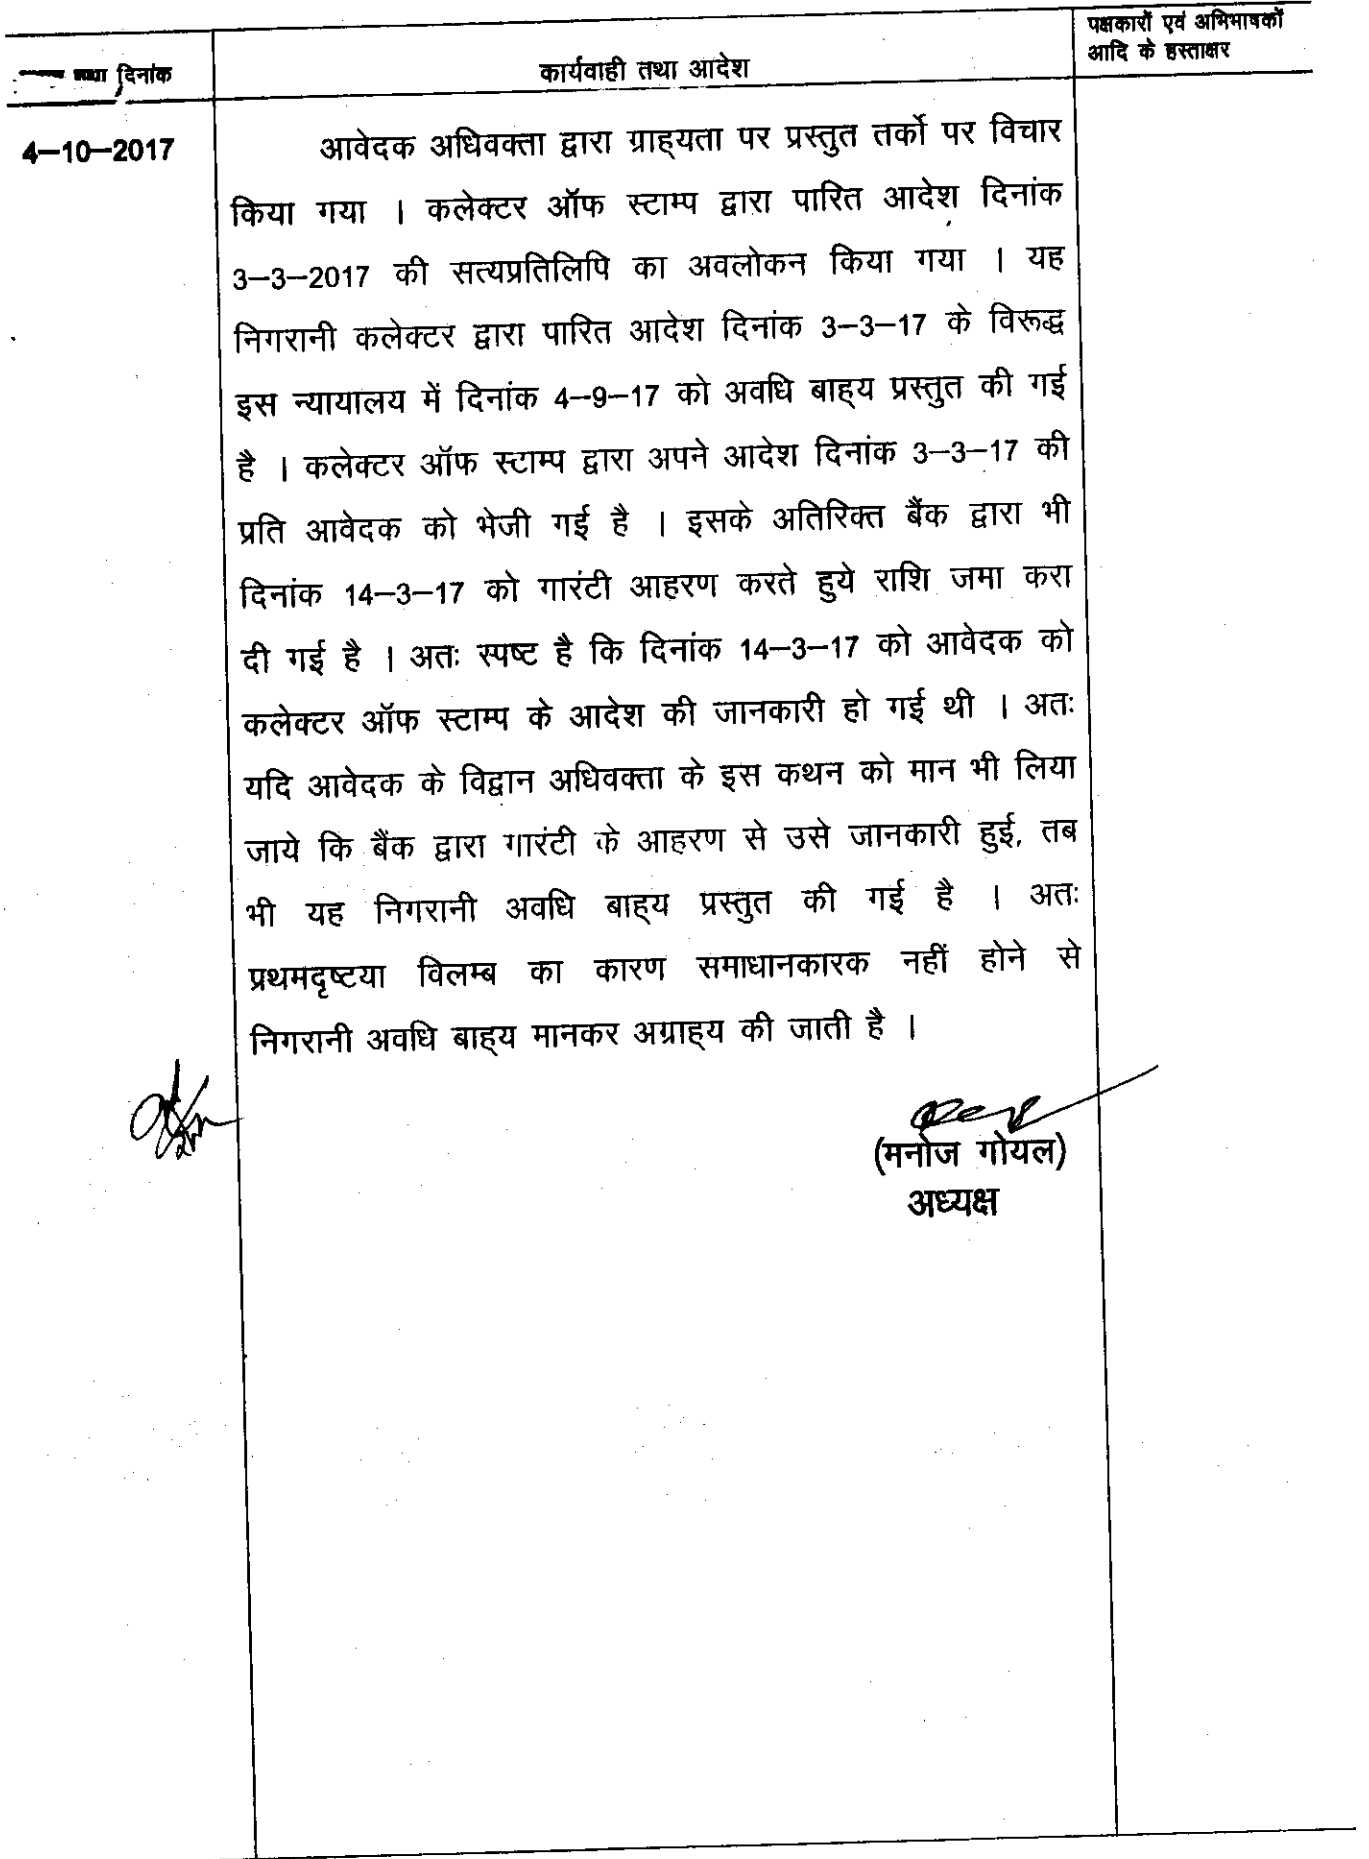 पक्षकारों एवं अभिभाषकों
आदि के हस्ताक्षर
तथा दिनांक
कार्यवाही तथा आदेश
4–10–2017
आवेदक अधिवक्ता द्वारा ग्राह्यता पर प्रस्तुत तर्को पर विचार
किया गया । कलेक्टर ऑफ स्टाम्प द्वारा पारित आदेश दिनांक
3–3–2017 की सत्यप्रतिलिपि का अवलोकन किया गया । यह
निगरानी कलेक्टर द्वारा पारित आदेश दिनांक 3–3–17 के विरूद्ध
इस न्यायालय में दिनांक 4–9–17 को अवधि बाह्य प्रस्तुत की गई
है । कलेक्टर ऑफ स्टाम्प द्वारा अपने आदेश दिनांक 3–3–17 की
प्रति आवेदक को भेजी गई है । इसके अतिरिक्त बैंक द्वारा भी
दिनांक 14–3–17 को गारंटी आहरण करते हुये राशि जमा करा
दी गई है । अतः स्पष्ट है कि दिनांक 14–3–17 को आवेदक को
कलेक्टर ऑफ स्टाम्प के आदेश की जानकारी हो गई थी । अतः
यदि आवेदक के विद्वान अधिवक्ता के इस कथन को मान भी लिया
जाये कि बैंक द्वारा गारंटी के आहरण से उसे जानकारी हुई, तब
भी यह निगरानी अवधि बाह्य प्रस्तुत की गई है । अतः
प्रथमदृष्टया विलम्ब का कारण समाधानकारक नहीं होने से
निगरानी अवधि बाह्य मानकर अग्राह्य की जाती है ।
(मनोज गोयल)
अध्यक्ष